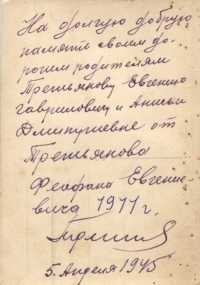 На долгую добрую
память своим до-
рогим родителям
Третьякову Евгению
Гавриловичу и Анисьи
Дмитриевне от
Третьякова
Феофана Евгение-
вича 1911 г.
5. Апреля 1945